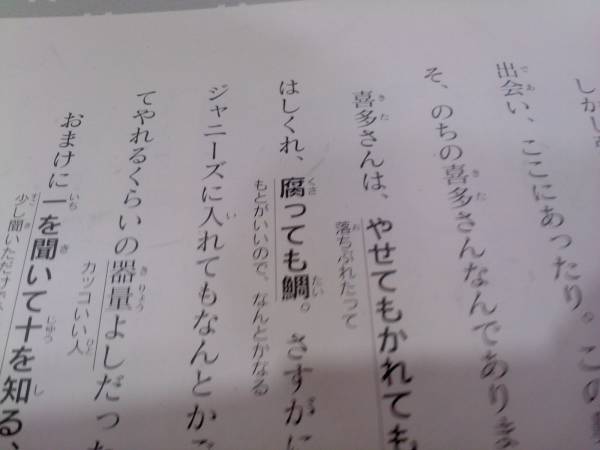 しかし
出会い、ここにあったり。この
そ、のちの喜多さんなんであり
喜多さんは、やせてもかれても
落ちぶれたって
はしくれ、腐っても鯛。さすがに
もとがいいので、なんとかなる
ジャニーズに入れてもなんとか
てやれるくらいの器量よしだった
カッコいい人
おまけに一を聞いて十を知る、
少し聞いただけで